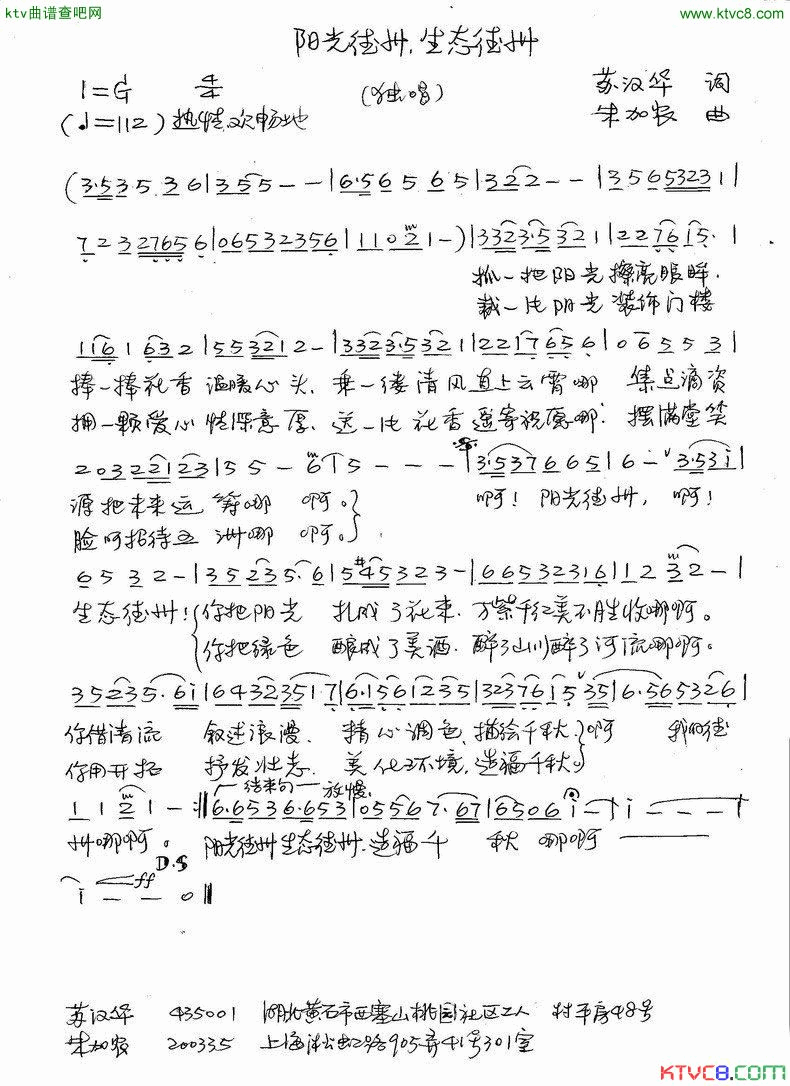 ktv曲谱查吧网
www.ktvc8.com
阳光德州,生态德州
1=G 4/4 (独唱) 苏汉华 词
(♩=112) 热情欢畅地 朱加农 曲
(3·5 3 5 · 3 6 | 3 5 5 - - | 6·5 6 5 6 5 | 3 2 2 - - | 3 5 6 5 3 2 3 1 |
7 2 3 2 7 6 5 6 | 0 6 5 3 2 3 5 6 | 1 1 0 2 1 - ) | 3 3 2 3·5 3 2 1 | 2 2 7 6 1 5 · |
抓一把阳光擦亮眼眸,
裁一片阴光装饰门楼
1 1 6 1 6 3 2 | 5 5 3 2 1 2 - | 3 3 2 3·5 3 2 1 | 2 2 1 7 6 5 6 | 0 6 5 5 3 |
捧一捧花香温暖心头, 乘一缕清风直上云霄哪 集点滴资
拥一颗爱心情深意厚, 送一片花香遥寄祝愿哪· 摆满堂笑
2 0 3 2 2 1 2 3 | 5 5 - 6 | 5 - - - | 3·5 3 7 6 6 5 | 6 - 3·5 3 i |
源把未来运筹哪 啊。 啊! 阳光德州, 啊!
脸呵招待五洲哪 啊。
6 5 3 2 - | 3 5 2 3 5 · 6 | 5 #4 5 3 2 3 - | 6 6 5 3 2 3 1 6 | 1 2 3 2 - |
生态德州! 你把阳光 扎成了花束, 万紫千红美不胜收哪啊。
你把绿色 酿成了美酒, 醉了山川醉了河流哪啊。
3 5 2 3 5 · 6 i | 6 4 3 2 3 5 1 · 7 | 6·1 5 6 1 2 3 5 | 3 2 3 7 6 1 5 3 5 | 6·5 6 5 3 2 6 |
你借清流 叙述浪漫, 精心调色,描绘千秋, 啊 我的德
你用开拓 抒发壮志, 美化环境,造福千秋。
1 1 2 1 - :‖ 结束句 放慢 6·6 5 3 6·6 5 3 | 0 5 5 6 7 · 6 7 | 6 5 0 6 i - | i - - - |
州哪啊。 阳光德州生态德州,造福千 秋 哪啊
D.S
i - - 0 ‖ ff
苏汉华 435001 湖北黄石市西塞山桃园社区工人村平房48号
朱加农 200335 上海淞虹路905弄41号301室
KTVC8.COM